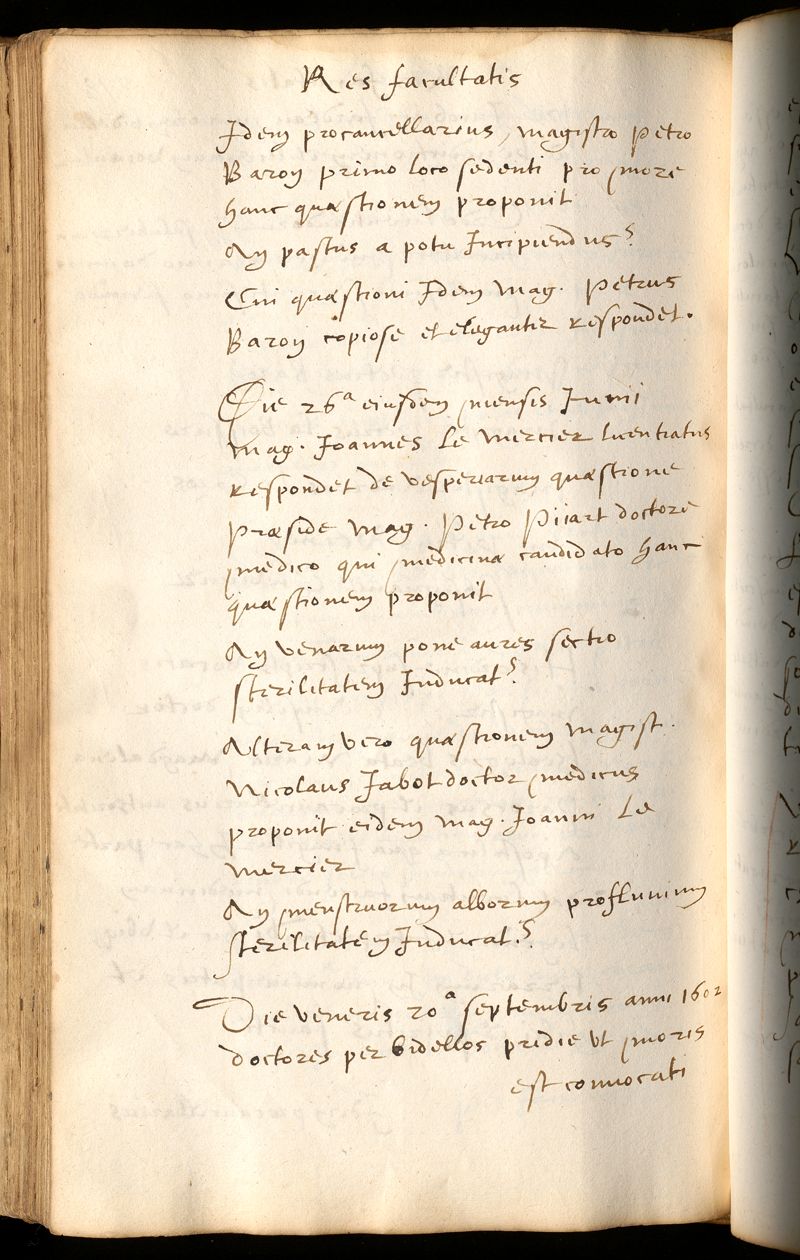 Res facultatis
Idem procancellarius, magistro Petro
Baron primo loco sedenti pro more
hanc quæstionem proponit
An pastus a potu Incipiendus?
Cui quæstioni Idem mag. Petrus
Baron copiose et eleganter respondet.
Die 26ª eiusdem mensis Iunii
mag. Ioannes Le mercier licentiatus
respondet de vesperiarum quæstione
Præside mag. Petro Pijart doctore
medico qui medicinæ candidato hanc
quæstionem proponit
An venarum pone aures sectio
sterilitatem Inducat?
Alteram vero quæstionem magist.
Nicolaus Jabot doctor medicus
proponit eidem mag. Ioanni Le
mercier
An menstruorum alborum profluvium
sterilitatem Inducat.?
Die veneris 20ª septembris anni 1602
doctores per bidellos pridie ut moris
est convocati